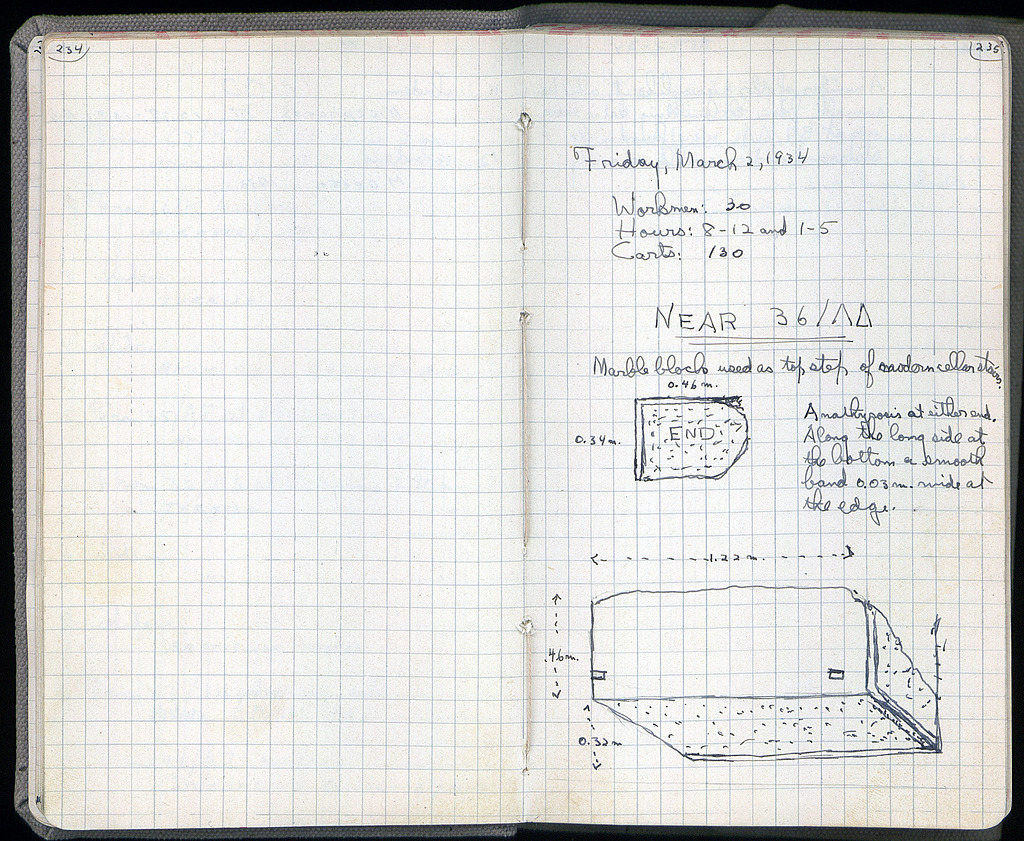 234
235
Friday, March 2, 1934
Workmen: 30
Hours: 8-12 and 1-5
Carts: 130
NEAR 36/ΛΔ
Marble block used as top step of modern cellar stairs.
0.46 m.
0.34 m.
END
Anathyrosis at either end.
Along the long side at
the bottom a smooth
band 0.03 m. wide at
the edge.
1.22 m.
.46 m.
0.32 m